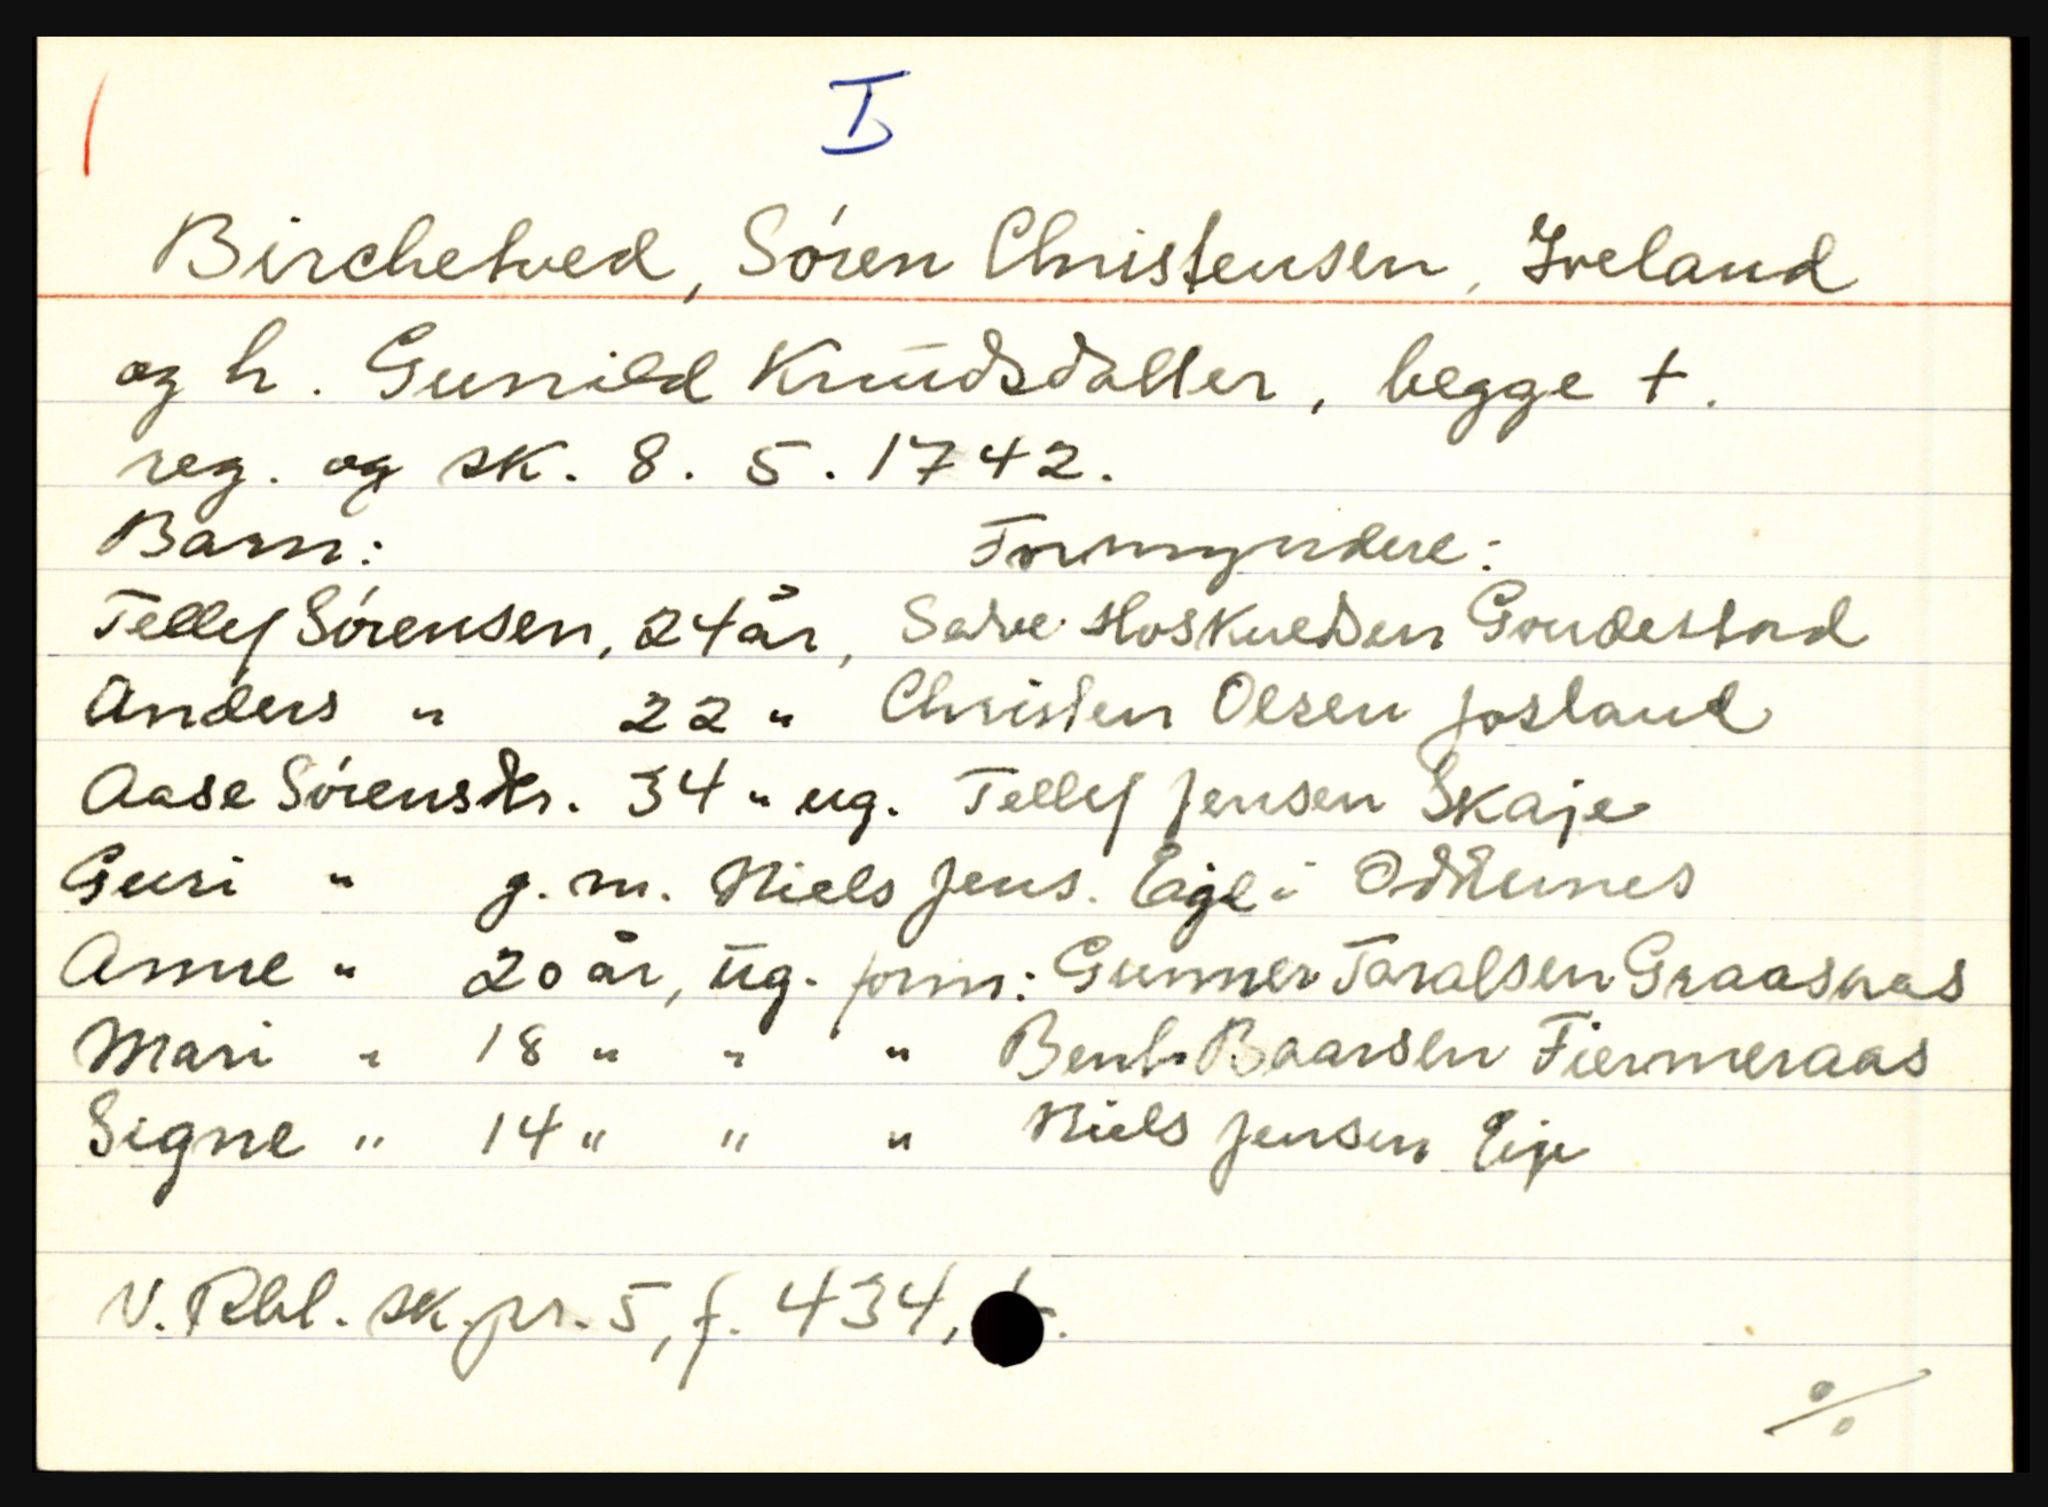 I
Birchetved, Søren Christensen, Iveland
og h. Gunild Knudsdatter, begge †.
reg. og sk. 8. 5. 1742.
Barn: Formyndere:
Tellef Sørensen, 24 år, Salve Hoskuedsen Gondestad
Anders " 22 " Christen Olsen Josland
Aase Sørensdtr. 34 " ug. Tellef Jensen Skaje
Guri " g.m. Niels Jens. Eige i Oddernes
Anne " 20 år, ug. form: Gunner Taralsen Graasnas
Mari " 18 " " " Bent Baarsen Fiermeraas
Signe " 14 " " " Niels Jensen Eije
N. Rbl. sk.pr. 5, f. 434,
%